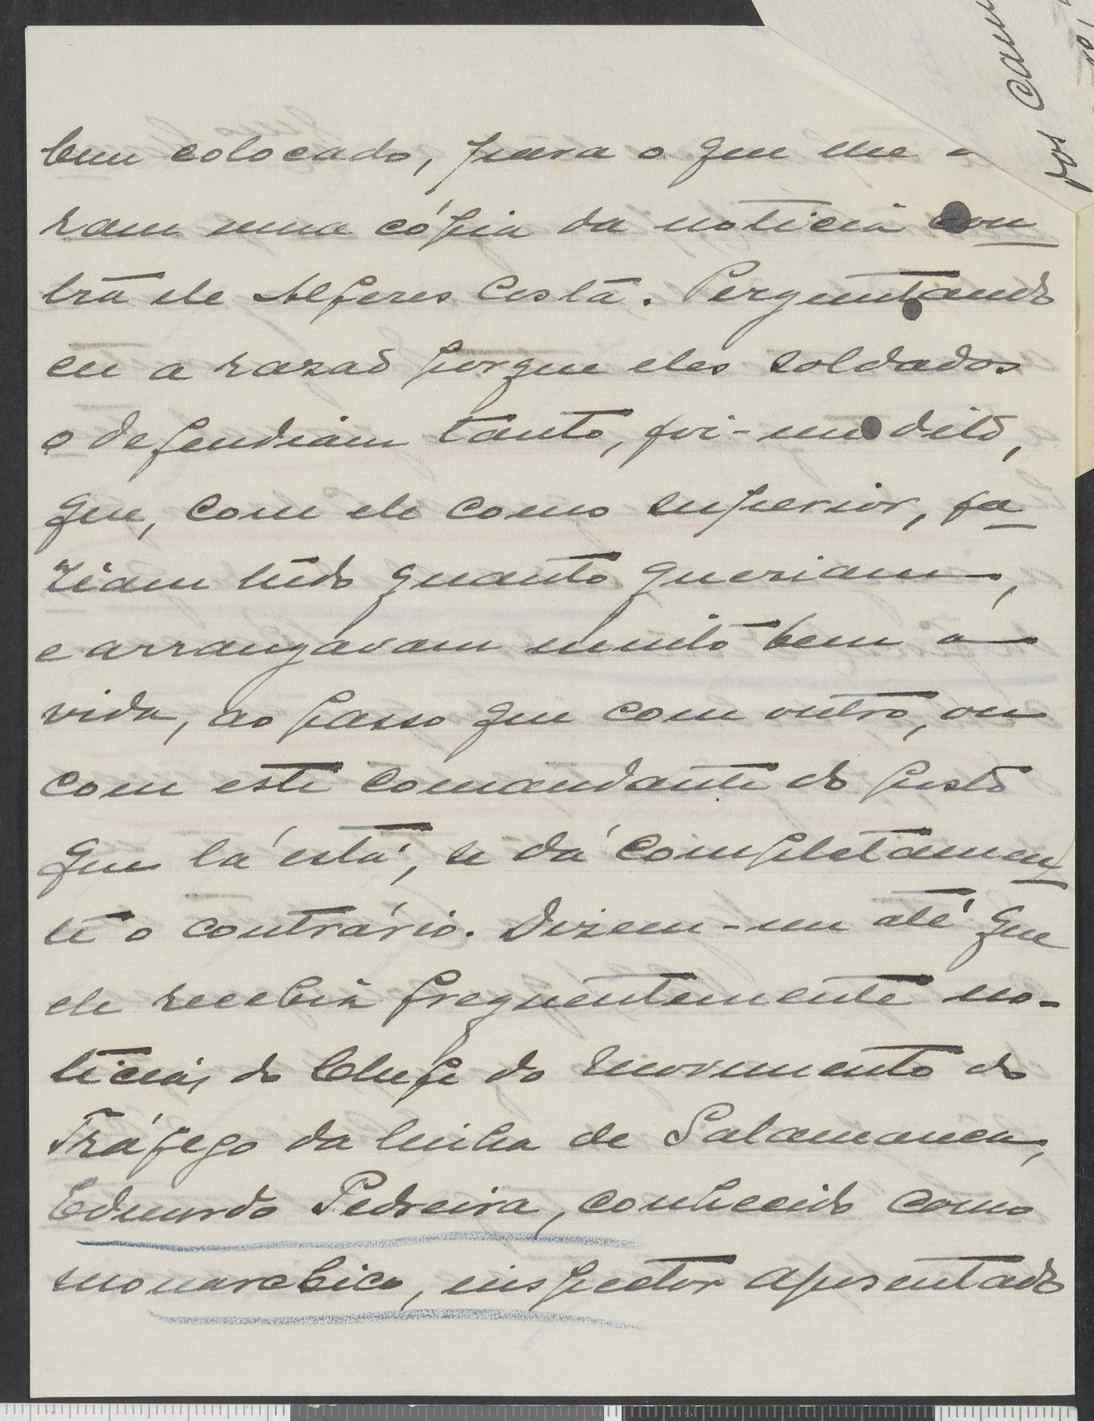 bem colocado, para o que me
ram uma cópia da noticia con
tra ele Alferes Costa. Perguntando
eu a razaõ porque eles soldados
o defendiam tanto, foi-me dito,
que, com ele como superior, fa
ziam tudo quanto queriam,
e arranjavam muito bem a
vida, ao passo que com outro, ou
com este comandante do posto
que lá está, se dá completamen
te o contrário. Dizem-me até que
ele recebia frequentemente no-
ticias do Chefe do Movimento do
Tráfego da linha de Salamanca,
Eduardo Pedreira, conhecido como
monarchico, inspector aposentado
dos